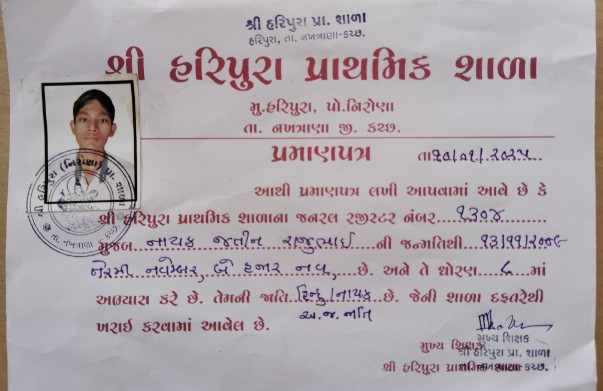 શ્રી હરિપુરા પ્રા. શાળા
હરિપુરા, તા. નખત્રાણા-કચ્છ.
શ્રી હરિપુરા પ્રાથમિક શાળા
મુ.હરિપુરા, પો.નિરોણા
તા. નખત્રાણા જી. કચ્છ.
પ્રમાણપત્ર તા.૧૦/૦૧/૨૦૨૫
શ્રી હરિપુરા (નિરોણા) પ્રા. શાળા
તા. નખત્રાણા
આથી પ્રમાણપત્ર લખી આપવામાં આવે છે કે
શ્રી હરિપુરા પ્રાથમિક શાળાના જનરલ રજીસ્ટર નંબર ૧૩૦૪
મુજબ નાયક જતીન રાજુભાઈ ની જન્મતિથી ૧૩/૧૧/૨૦૦૯
તેરમી નવેમ્બર, બે હજાર નવ, છે. અને તે ધોરણ ૮ માં
અભ્યાસ કરે છે. તેમની જાતિ હિન્દુ/નાયક છે. જેની શાળા દફતરેથી
અ.જ.જાતિ
ખરાઈ કરવામાં આવેલ છે.
મુખ્ય શિક્ષક
મુખ્ય શિક્ષક
શ્રી હરિપુરા પ્રા. શાળા
શ્રી હરિપુરા પ્રાથમિક શાળા
તા. નખત્રાણા-કચ્છ.